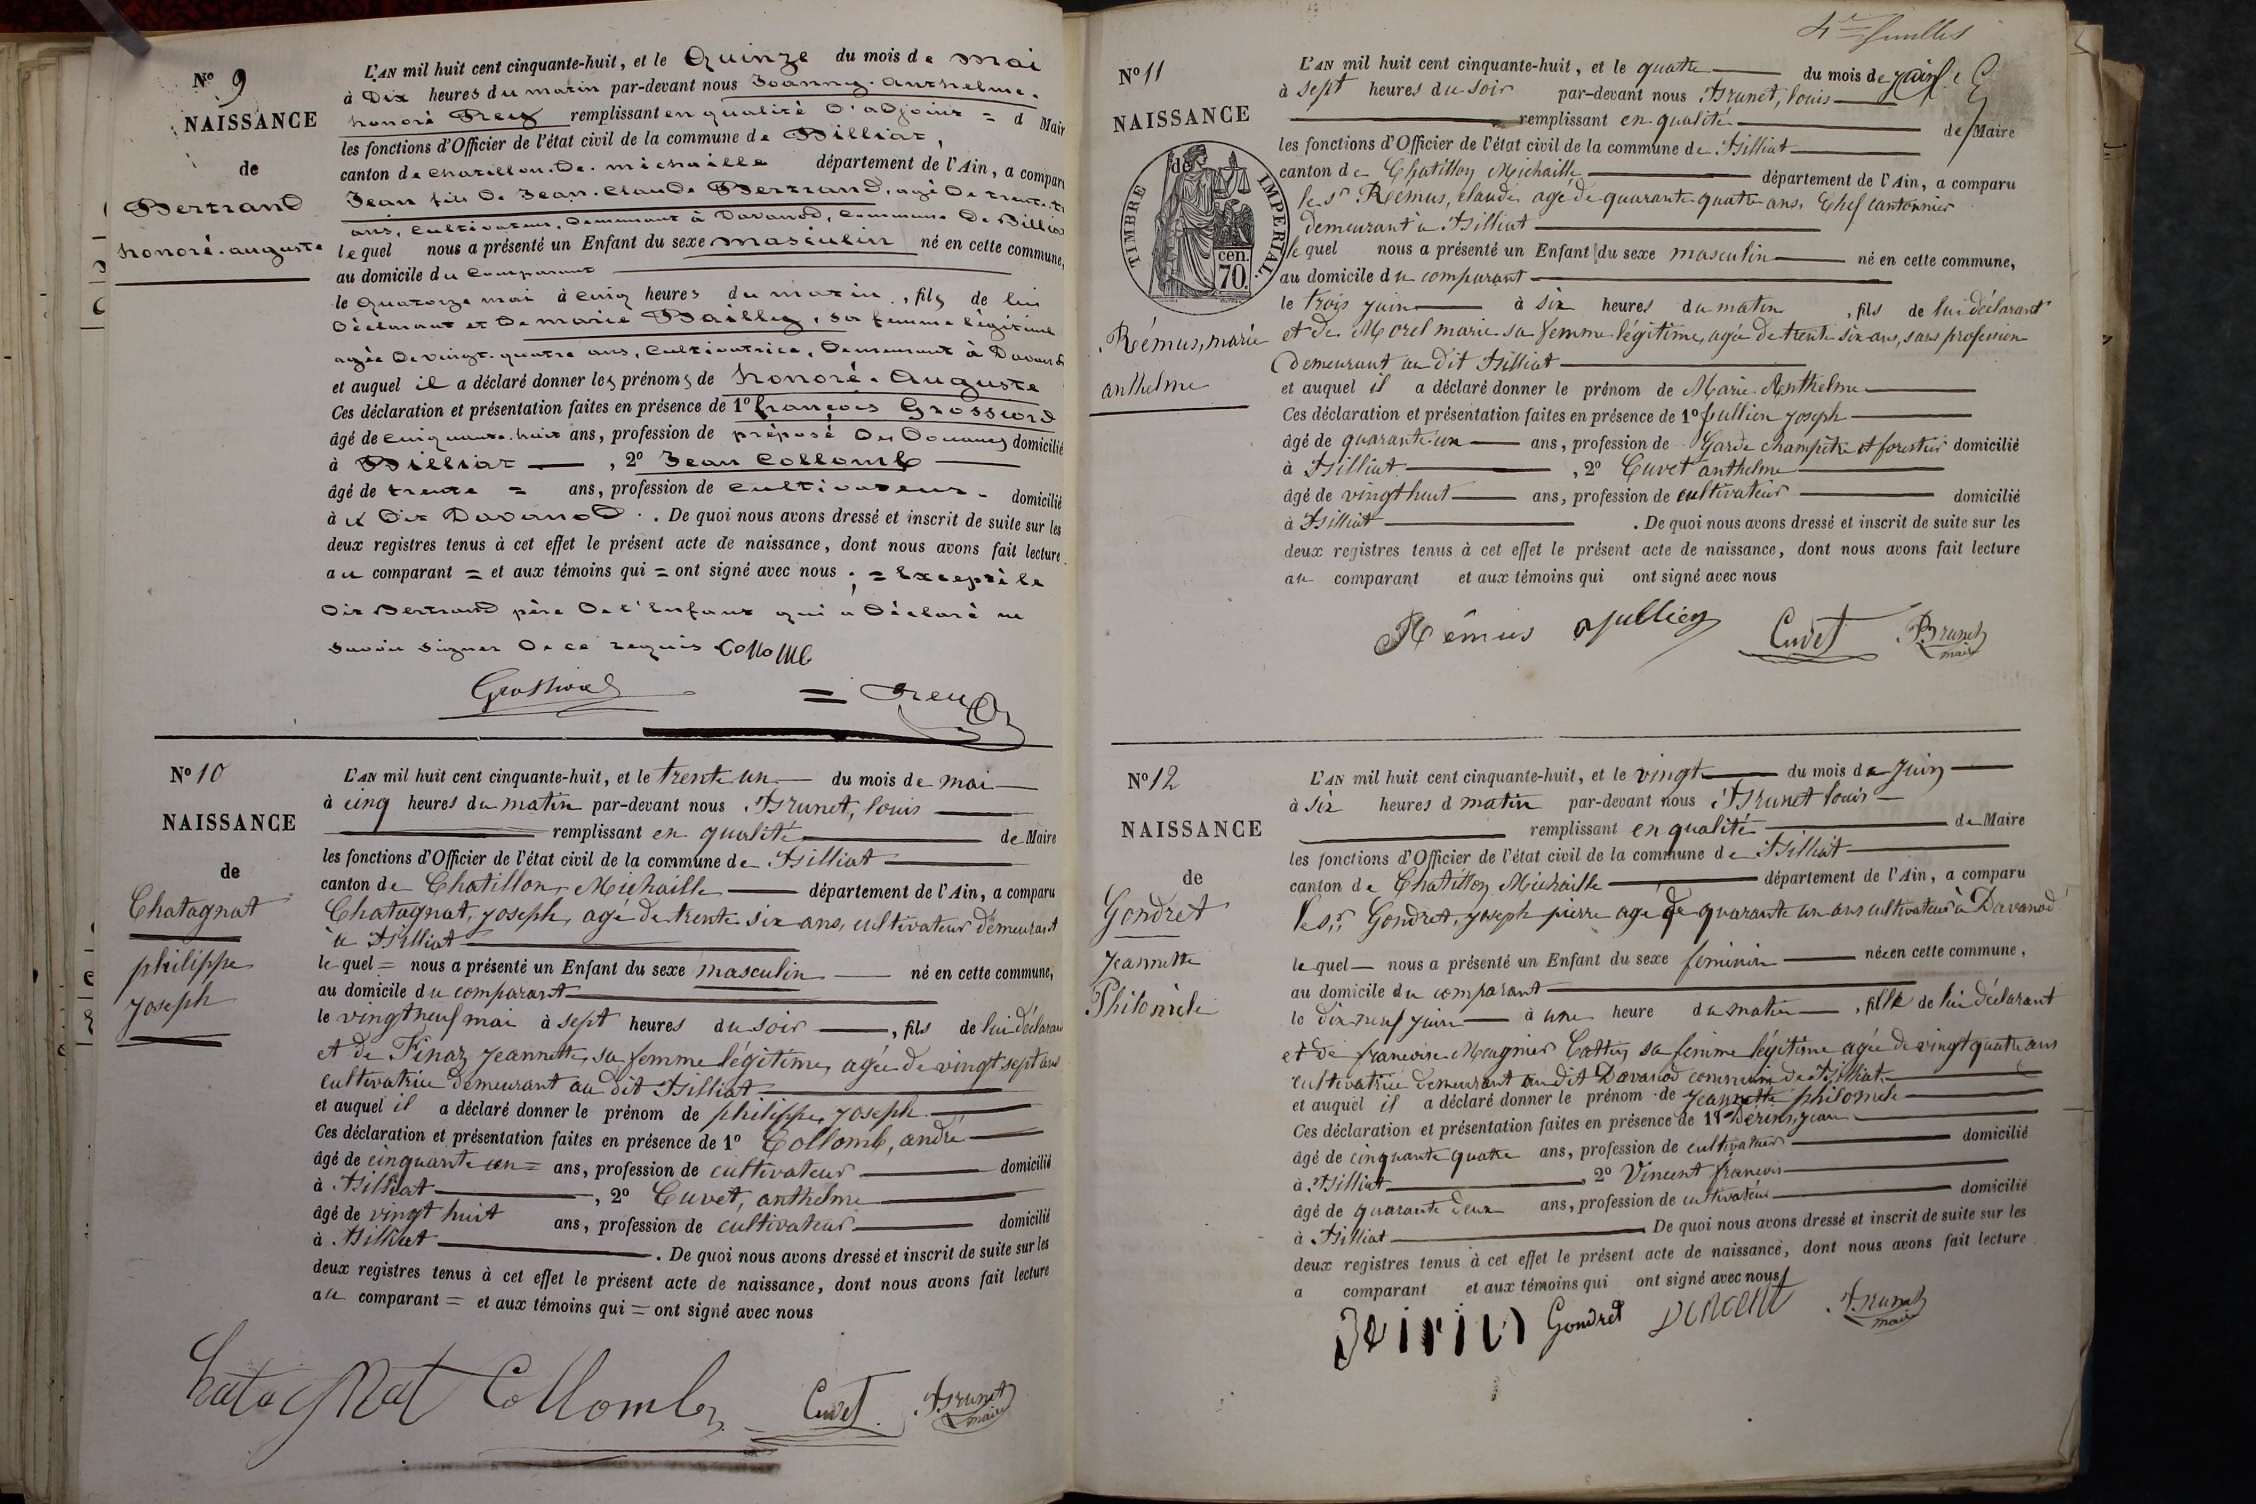 No 9
NAISSANCE
de
Bertrand
honoré-auguste
L'AN mil huit cent cinquante-huit, et le Quinze du mois de mai
à Dix heures du matin par-devant nous Joanny-Anthelme-
honoré Rey remplissant en qualité d'adjoint = d Mair
les fonctions d'Officier de l'état civil de la commune de Billiat,
canton de Chatillon-De-michaille département de l'Ain, a compar
Jean fils de Jean-Claude Bertrand, agé de trente
ans, cultivateur, demeurant à Davanod, commune De Billiat
lequel nous a présenté un Enfant du sexe masculin né en cette commune,
au domicile du comparant
le quatorze mai à cinq heures du matin, fils de lui
Déclarant et De marie Bailly, sa femme légitime
agée De vingt-quatre ans, cultivatrice, Demeurant à Davanod
et auquel il a déclaré donner les prénoms de honoré-Auguste
Ces déclaration et présentation faites en présence de 1º françois Grossiord
âgé de cinquante-huit ans, profession de préposé Des Douanes domicilié
à Billiat, 2º Jean Collomb
âgé de trente = ans, profession de cultivateur domicilié
à u Dit Davanod. De quoi nous avons dressé et inscrit de suite sur les
deux registres tenus à cet effet le présent acte de naissance, dont nous avons fait lecture
au comparant = et aux témoins qui = ont signé avec nous; = Excepté le
Dit Bertrand père De l'Enfant qui a Déclaré ne
savoir signer De ce requis Collomb
Grossiord = Rey
No 10
NAISSANCE
de
Chatagnat
philippe
joseph
L'AN mil huit cent cinquante-huit, et le trente un du mois de mai
à cinq heures du matin par-devant nous Brunet, louis
remplissant en qualité de Maire
les fonctions d'Officier de l'état civil de la commune de Billiat
canton de Chatillon, Michaille département de l'Ain, a comparu
Chatagnat, joseph, agé de trente six ans, cultivateur demeurant
à Billiat
lequel = nous a présenté un Enfant du sexe masculin né en cette commune,
au domicile du comparant
le vingt neuf mai à sept heures du soir, fils de lui déclarant
et de Finaz jeannette, sa femme légitime, agée de vingt sept ans
cultivatrice demeurant au dit Billiat
et auquel il a déclaré donner le prénom de philippe, joseph
Ces déclaration et présentation faites en présence de 1º Collomb, andré
âgé de cinquante un = ans, profession de cultivateur domicilié
à Billiat, 2º Cuvet, anthelme
âgé de vingt huit ans, profession de cultivateur domicilié
à Billiat. De quoi nous avons dressé et inscrit de suite sur les
deux registres tenus à cet effet le présent acte de naissance, dont nous avons fait lecture
au comparant = et aux témoins qui = ont signé avec nous
Chatagnat Collomb Cuvet Brunet
maire
feuillet
No 11
NAISSANCE
de
TIMBRE IMPERIAL.
cen.
70.
Rémus, marie
anthelme
L'AN mil huit cent cinquante-huit, et le quatre du mois de juin
à sept heures du soir par-devant nous Brunet, louis
remplissant en qualité de Maire
les fonctions d'Officier de l'état civil de la commune de Billiat
canton de Chatillon Michaille département de l'Ain, a comparu
le sr Rémus, claude agé de quarante quatre ans, Chef cantonnier
demeurant à Billiat
lequel nous a présenté un Enfant du sexe masculin né en cette commune,
au domicile du comparant
le trois juin à six heures du matin, fils de lui déclarant
et de Morel marie sa femme légitime, agée de trente six ans, sans profession
demeurant au dit Billiat
et auquel il a déclaré donner le prénom de Marie Anthelme
Ces déclaration et présentation faites en présence de 1º Jullien joseph
âgé de quarante un ans, profession de Garde champêtre et forestier domicilié
à Billiat, 2º Cuvet anthelme
âgé de vingt huit ans, profession de cultivateur domicilié
à Billiat. De quoi nous avons dressé et inscrit de suite sur les
deux registres tenus à cet effet le présent acte de naissance, dont nous avons fait lecture
au comparant et aux témoins qui ont signé avec nous
Rémus Jullien Cuvet Brunet
maire
No 12
NAISSANCE
de
Gondret
Jeannette
Philomèle
L'AN mil huit cent cinquante-huit, et le vingt du mois de Juin
à six heures d matin par-devant nous Brunet louis
remplissant en qualité de Maire
les fonctions d'Officier de l'état civil de la commune de Billiat
canton de Chatillon Michaille département de l'Ain, a comparu
le sr Gondret, joseph pierre agé de quarante un ans cultivateur à Davanod
lequel nous a présenté un Enfant du sexe feminin née en cette commune,
au domicile du comparant
le dix neuf juin à une heure du matin, fille de lui déclarant
et de francoise Meugnier Cattin sa femme légitime agée de vingt quatre ans
cultivatrice demeurant au dit Davanod commune de Billiat
et auquel il a déclaré donner le prénom de jeannette philomèle
Ces déclaration et présentation faites en présence de 1º Dérins, jean
âgé de cinquante quatre ans, profession de cultivateur domicilié
à Billiat, 2º Vincent françois
âgé de quarante deux ans, profession de cultivateur domicilié
à Billiat. De quoi nous avons dressé et inscrit de suite sur les
deux registres tenus à cet effet le présent acte de naissance, dont nous avons fait lecture
a comparant et aux témoins qui ont signé avec nous
Gondret vincent Brunet
maire